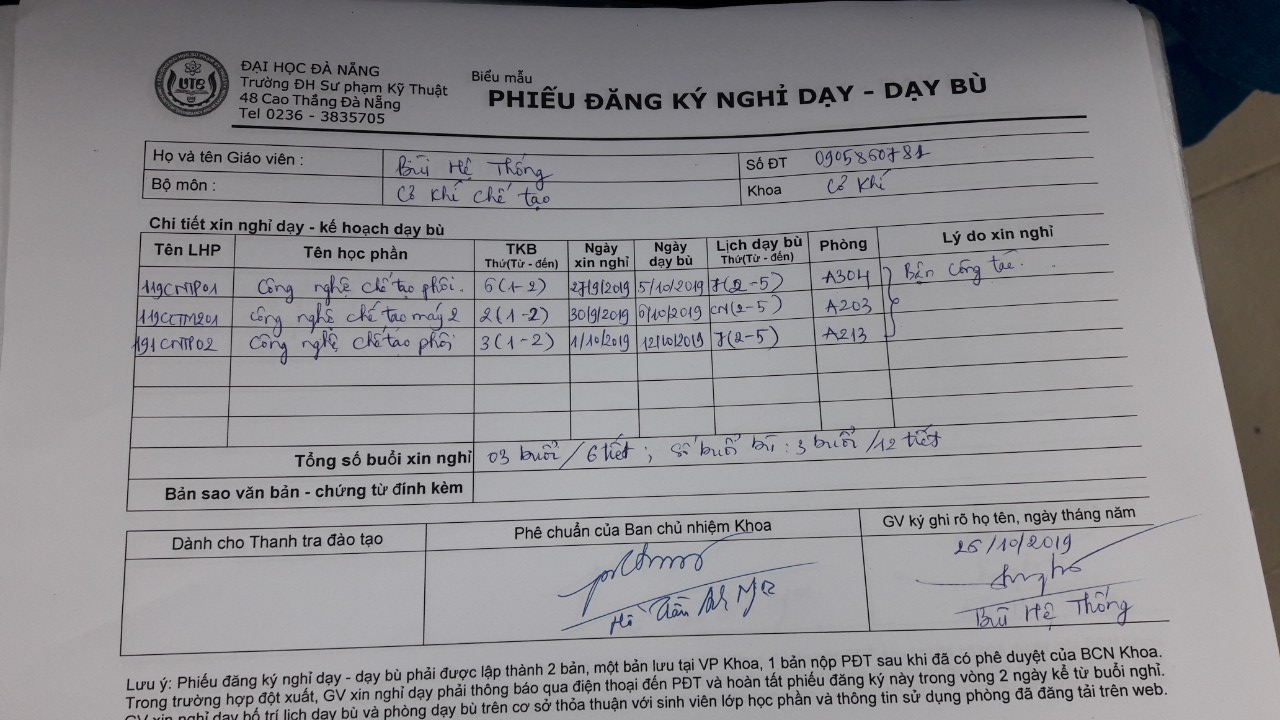 ĐẠI HỌC ĐÀ NẴNG
Trường ĐH Sư phạm Kỹ Thuật
48 Cao Thắng Đà Nẵng
Tel 0236 - 3835705
Biểu mẫu
PHIẾU ĐĂNG KÝ NGHỈ DẠY - DẠY BÙ
Họ và tên Giáo viên : Bùi Hệ Thống Số ĐT 0905860781
Bộ môn : Cơ Khí Chế tạo Khoa Cơ Khí
Chi tiết xin nghỉ dạy - kế hoạch dạy bù
Tên LHP Tên học phần TKB Thứ(Từ - đến) Ngày xin nghỉ Ngày dạy bù Lịch dạy bù Thứ(Từ - đến) Phòng Lý do xin nghỉ
119CNTP01 Công nghệ chế tạo phôi. 6(1-2) 27/9/2019 5/10/2019 7(2-5) A304 Bận công tác.
119CCTM201 Công nghệ chế tạo máy 2 2(1-2) 30/9/2019 6/10/2019 CN(2-5) A203
191CNTP02 Công nghệ chế tạo phôi 3(1-2) 1/10/2019 12/10/2019 7(2-5) A213
Tổng số buổi xin nghỉ 03 buổi / 6 tiết ; Số buổi bù : 3 buổi /12 tiết
Bản sao văn bản - chứng từ đính kèm
Dành cho Thanh tra đào tạo Phê chuẩn của Ban chủ nhiệm Khoa GV ký ghi rõ họ tên, ngày tháng năm
26/10/2019
Bùi Hệ Thống
Lưu ý: Phiếu đăng ký nghỉ dạy - dạy bù phải được lập thành 2 bản, một bản lưu tại VP Khoa, 1 bản nộp PĐT sau khi đã có phê duyệt của BCN Khoa.
Trong trường hợp đột xuất, GV xin nghỉ dạy phải thông báo qua điện thoại đến PĐT và hoàn tất phiếu đăng ký này trong vòng 2 ngày kể từ buổi nghỉ.
GV xin nghỉ dạy bố trí lịch dạy bù và phòng dạy bù trên cơ sở thỏa thuận với sinh viên lớp học phần và thông tin sử dụng phòng đã đăng tải trên web.